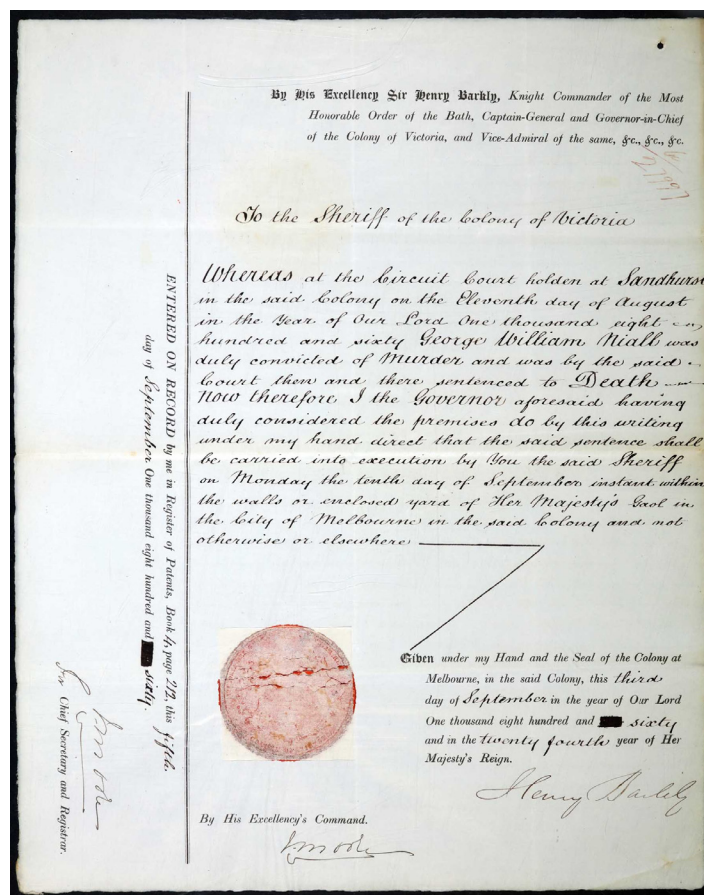 By His Excellency Sir Henry Barkly, Knight Commander of the Most
Honorable Order of the Bath, Captain-General and Governor-in-Chief
of the Colony of Victoria, and Vice-Admiral of the same, &c., &c., &c.
To the Sheriff of the Colony of Victoria
Whereas at the Circuit Court holden at Sandhurst
in the said Colony on the Eleventh day of August
in the Year of Our Lord One thousand eight
hundred and sixty George William Niall was
duly convicted of Murder and was by the said
Court then and there sentenced to Death
Now therefore I the Governor aforesaid having
duly considered the premises do by this writing
under my hand direct that the said sentence shall
be carried into execution by You the said Sheriff
on Monday the tenth day of September instant within
the walls or enclosed yard of Her Majesty's Gaol in
the City of Melbourne in the said Colony and not
otherwise or elsewhere
Given under my Hand and the Seal of the Colony at
Melbourne, in the said Colony, this third
day of September in the year of Our Lord
One thousand eight hundred and sixty
and in the twenty fourth year of Her
Majesty's Reign.
Henry Barkly
By His Excellency's Command.
ENTERED ON RECORD by me in Register of Patents, Book 4, page 212, this fifth
day of September One thousand eight hundred and sixty.
For Chief Secretary and Registrar.